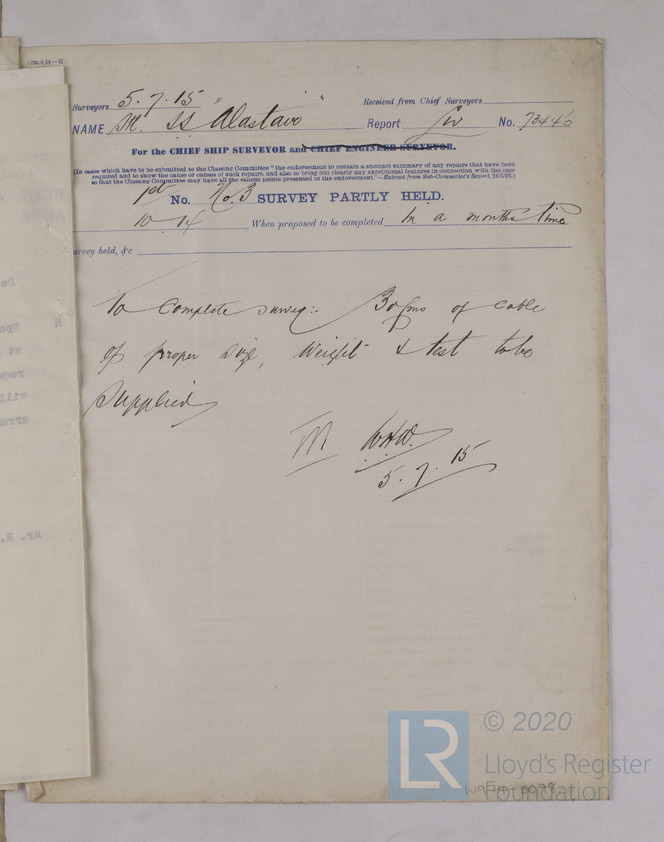 (2m.9.14.—H.)
Surveyors 5.7.15 Received from Chief Surveyors
NAME SS "Alastair" Report Liv No. 73446
For the CHIEF SHIP SURVEYOR and CHIEF ENGINEER SURVEYOR.
(In cases which have to be submitted to the Classing Committee "the endorsement to contain a succinct summary of any repairs that have been
required and to show the cause or causes of such repairs, and also to bring out clearly any exceptional features in connection with the case
so that the Classing Committee may have all the salient points presented in the endorsement."—Extract from Sub-Committee's Report, 24/5/92.)
1st No. No. 3 SURVEY PARTLY HELD.
10 14 When proposed to be completed In a months time
urvey held, &c
To complete survey:- 30 fms of cable
of proper size, weight & test to be
supplied
M WHW.
5.7.15
© 2020
LR Lloyd's Register
Foundation